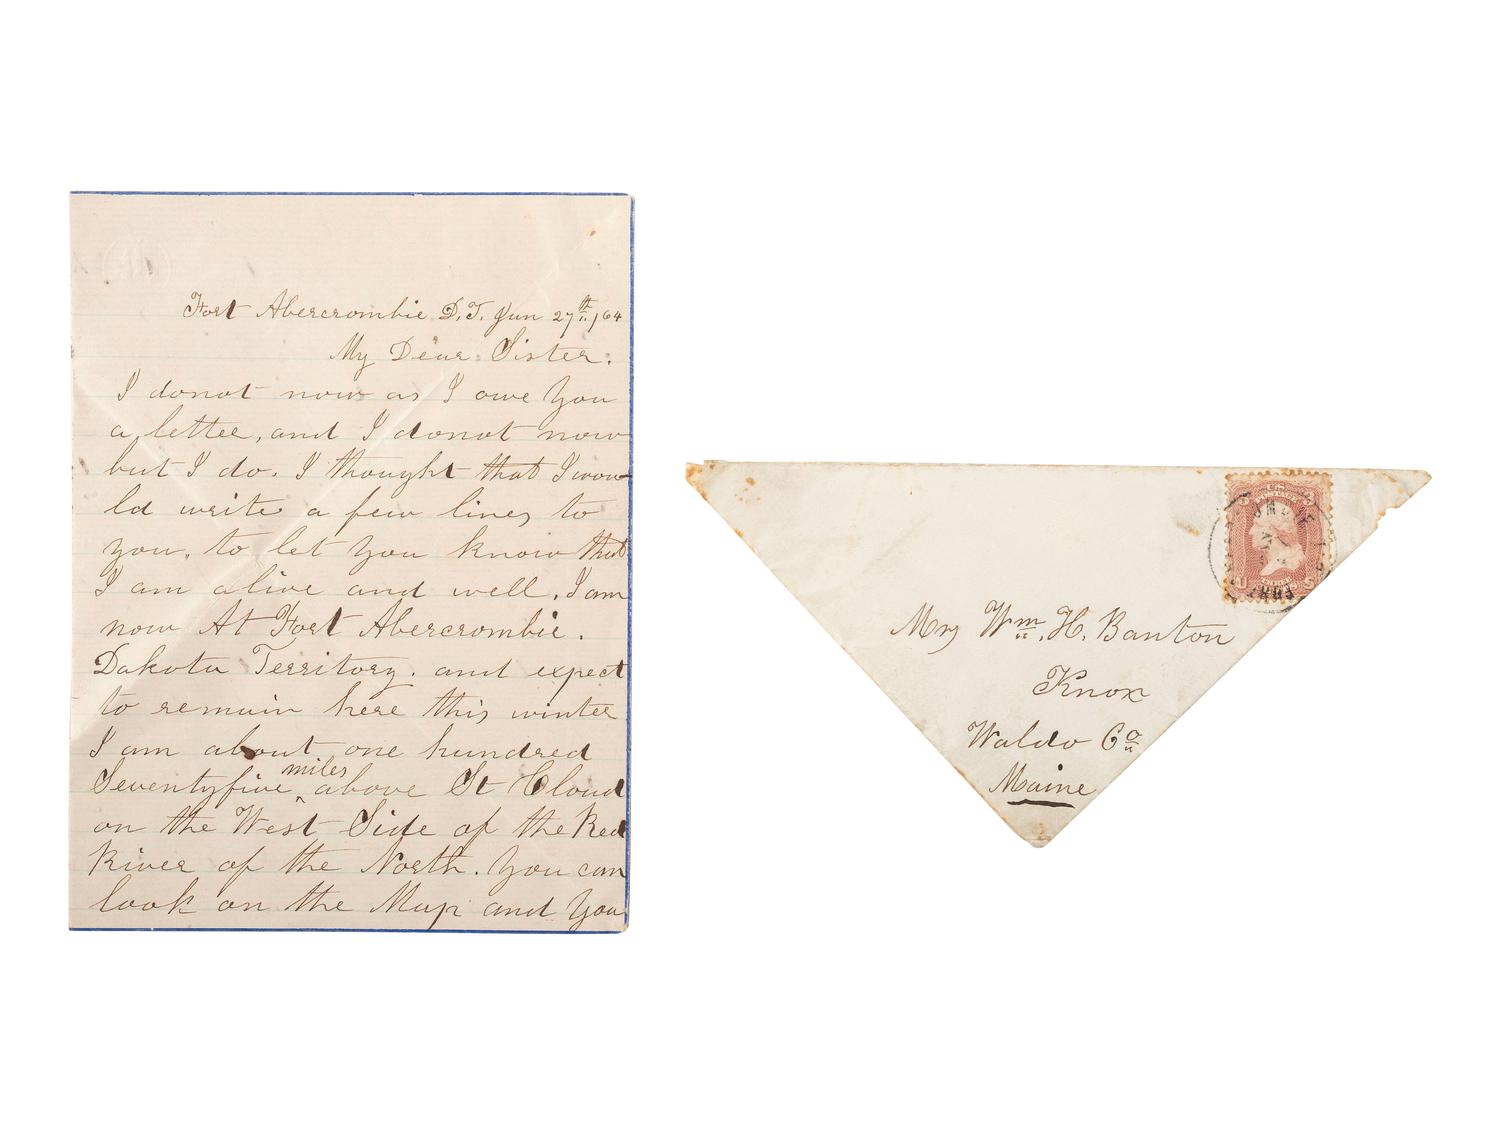 Fort Abercrombie D.T. Jun 27th /64
My Dear Sister.
I donot now as I owe you
a letter, and I donot now
but I do. I thought that I wou-
ld write a few lines to
you, to let you know that
I am alive and well, I am
now At Fort Abercrombie.
Dakota Territory. and expect
to remain here this winter
I am about one hundred
Seventyfive miles above St Cloud
on the West Side of the Red
River of the North. you can
look on the Map and you
Mrs Wm. H. Banton
Knox
Waldo Co
Maine